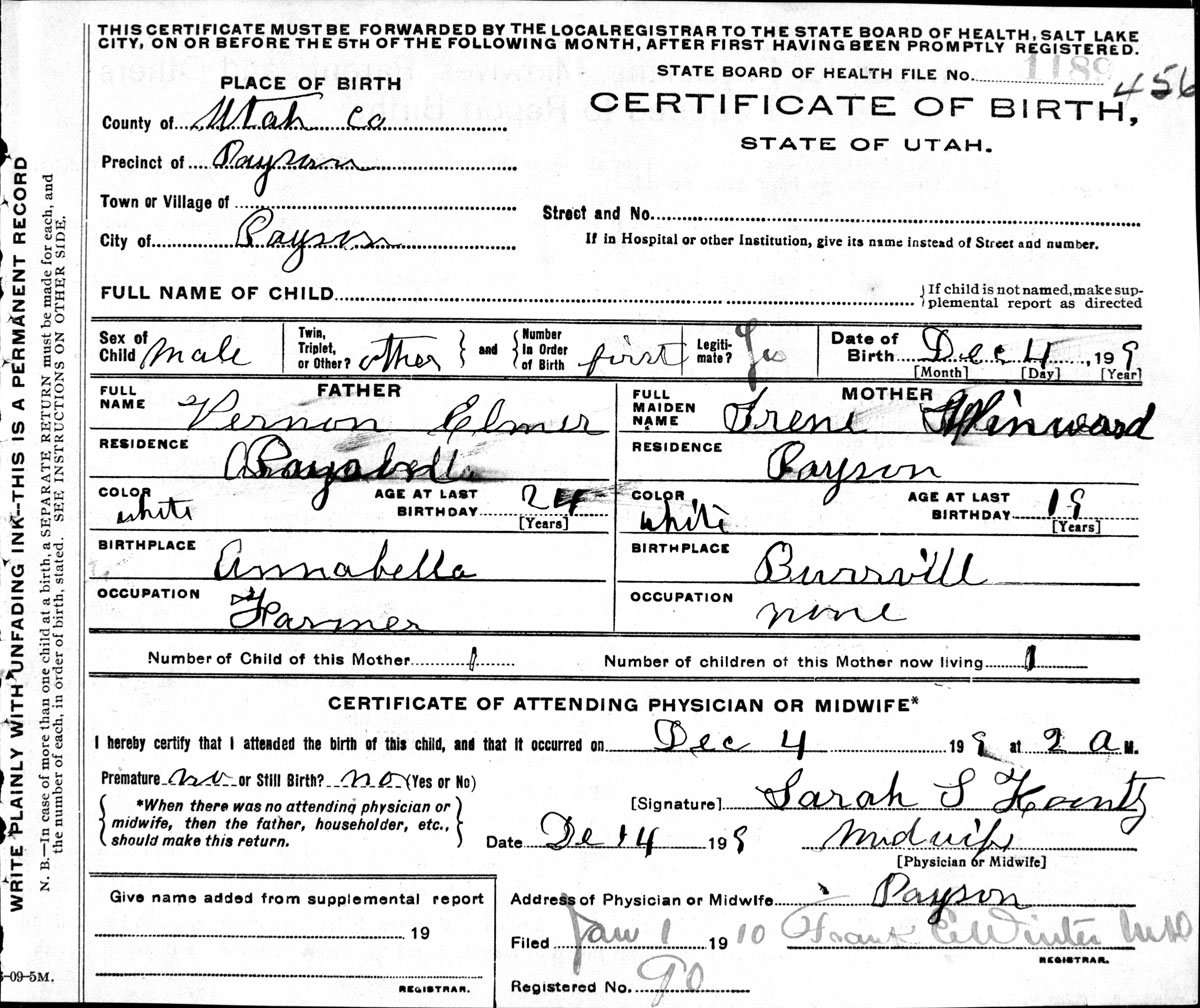 THIS CERTIFICATE MUST BE FORWARDED BY THE LOCAL REGISTRAR TO THE STATE BOARD OF HEALTH, SALT LAKE
CITY, ON OR BEFORE THE 5TH OF THE FOLLOWING MONTH, AFTER FIRST HAVING BEEN PROMPTLY REGISTERED.
STATE BOARD OF HEALTH FILE No. 1189 456
PLACE OF BIRTH
CERTIFICATE OF BIRTH,
STATE OF UTAH.
County of Utah co
Precinct of Payson
Town or Village of
Street and No.
City of Payson
If in Hospital or other Institution, give its name instead of Street and number.
FULL NAME OF CHILD
If child is not named, make sup-
plemental report as directed
Sex of Child male
Twin, Triplet, or Other? other
and
Number In Order of Birth first
Legiti-mate? yes
Date of Birth Dec 4, 19 9
[Month] [Day] [Year]
FATHER
FULL NAME Vernon Elmer
RESIDENCE
COLOR white
AGE AT LAST BIRTHDAY 24
[Years]
BIRTHPLACE Annabella
OCCUPATION Farmer
MOTHER
FULL MAIDEN NAME Irene Winward
RESIDENCE Payson
COLOR white
AGE AT LAST BIRTHDAY 19
[Years]
BIRTHPLACE Burrvill
OCCUPATION none
Number of Child of this Mother 1
Number of children of this Mother now living 1
CERTIFICATE OF ATTENDING PHYSICIAN OR MIDWIFE*
I hereby certify that I attended the birth of this child, and that it occurred on Dec 4 19 9 at 2 A M.
Premature no or Still Birth? no (Yes or No)
*When there was no attending physician or
midwife, then the father, householder, etc.,
should make this return.
[Signature] Sarah S
Date 14 19 9 Midwife
[Physician or Midwife]
Give name added from supplemental report
19
REGISTRAR.
Address of Physician or Midwife Payson
Filed Jan 1 19 10 Frank E Winter MD
REGISTRAR.
Registered No. 90
WRITE PLAINLY WITH UNFADING INK--THIS IS A PERMANENT RECORD
N. B.—In case of more than one child at a birth, a SEPARATE RETURN must be made for each, and
the number of each, in order of birth, stated. SEE INSTRUCTIONS ON OTHER SIDE.
-09-5M.